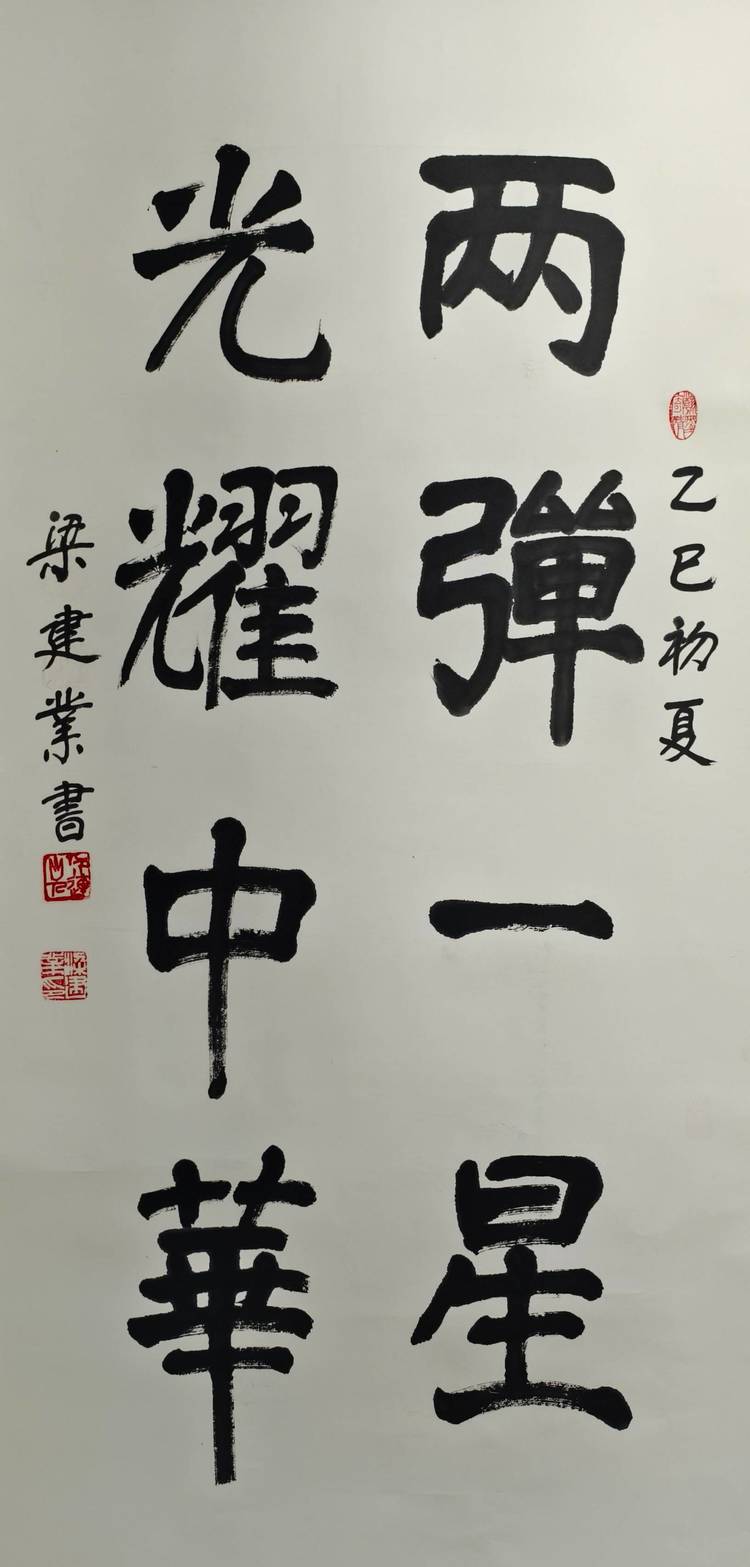 乙巳初夏
两彈一星
光耀中華
梁建業書